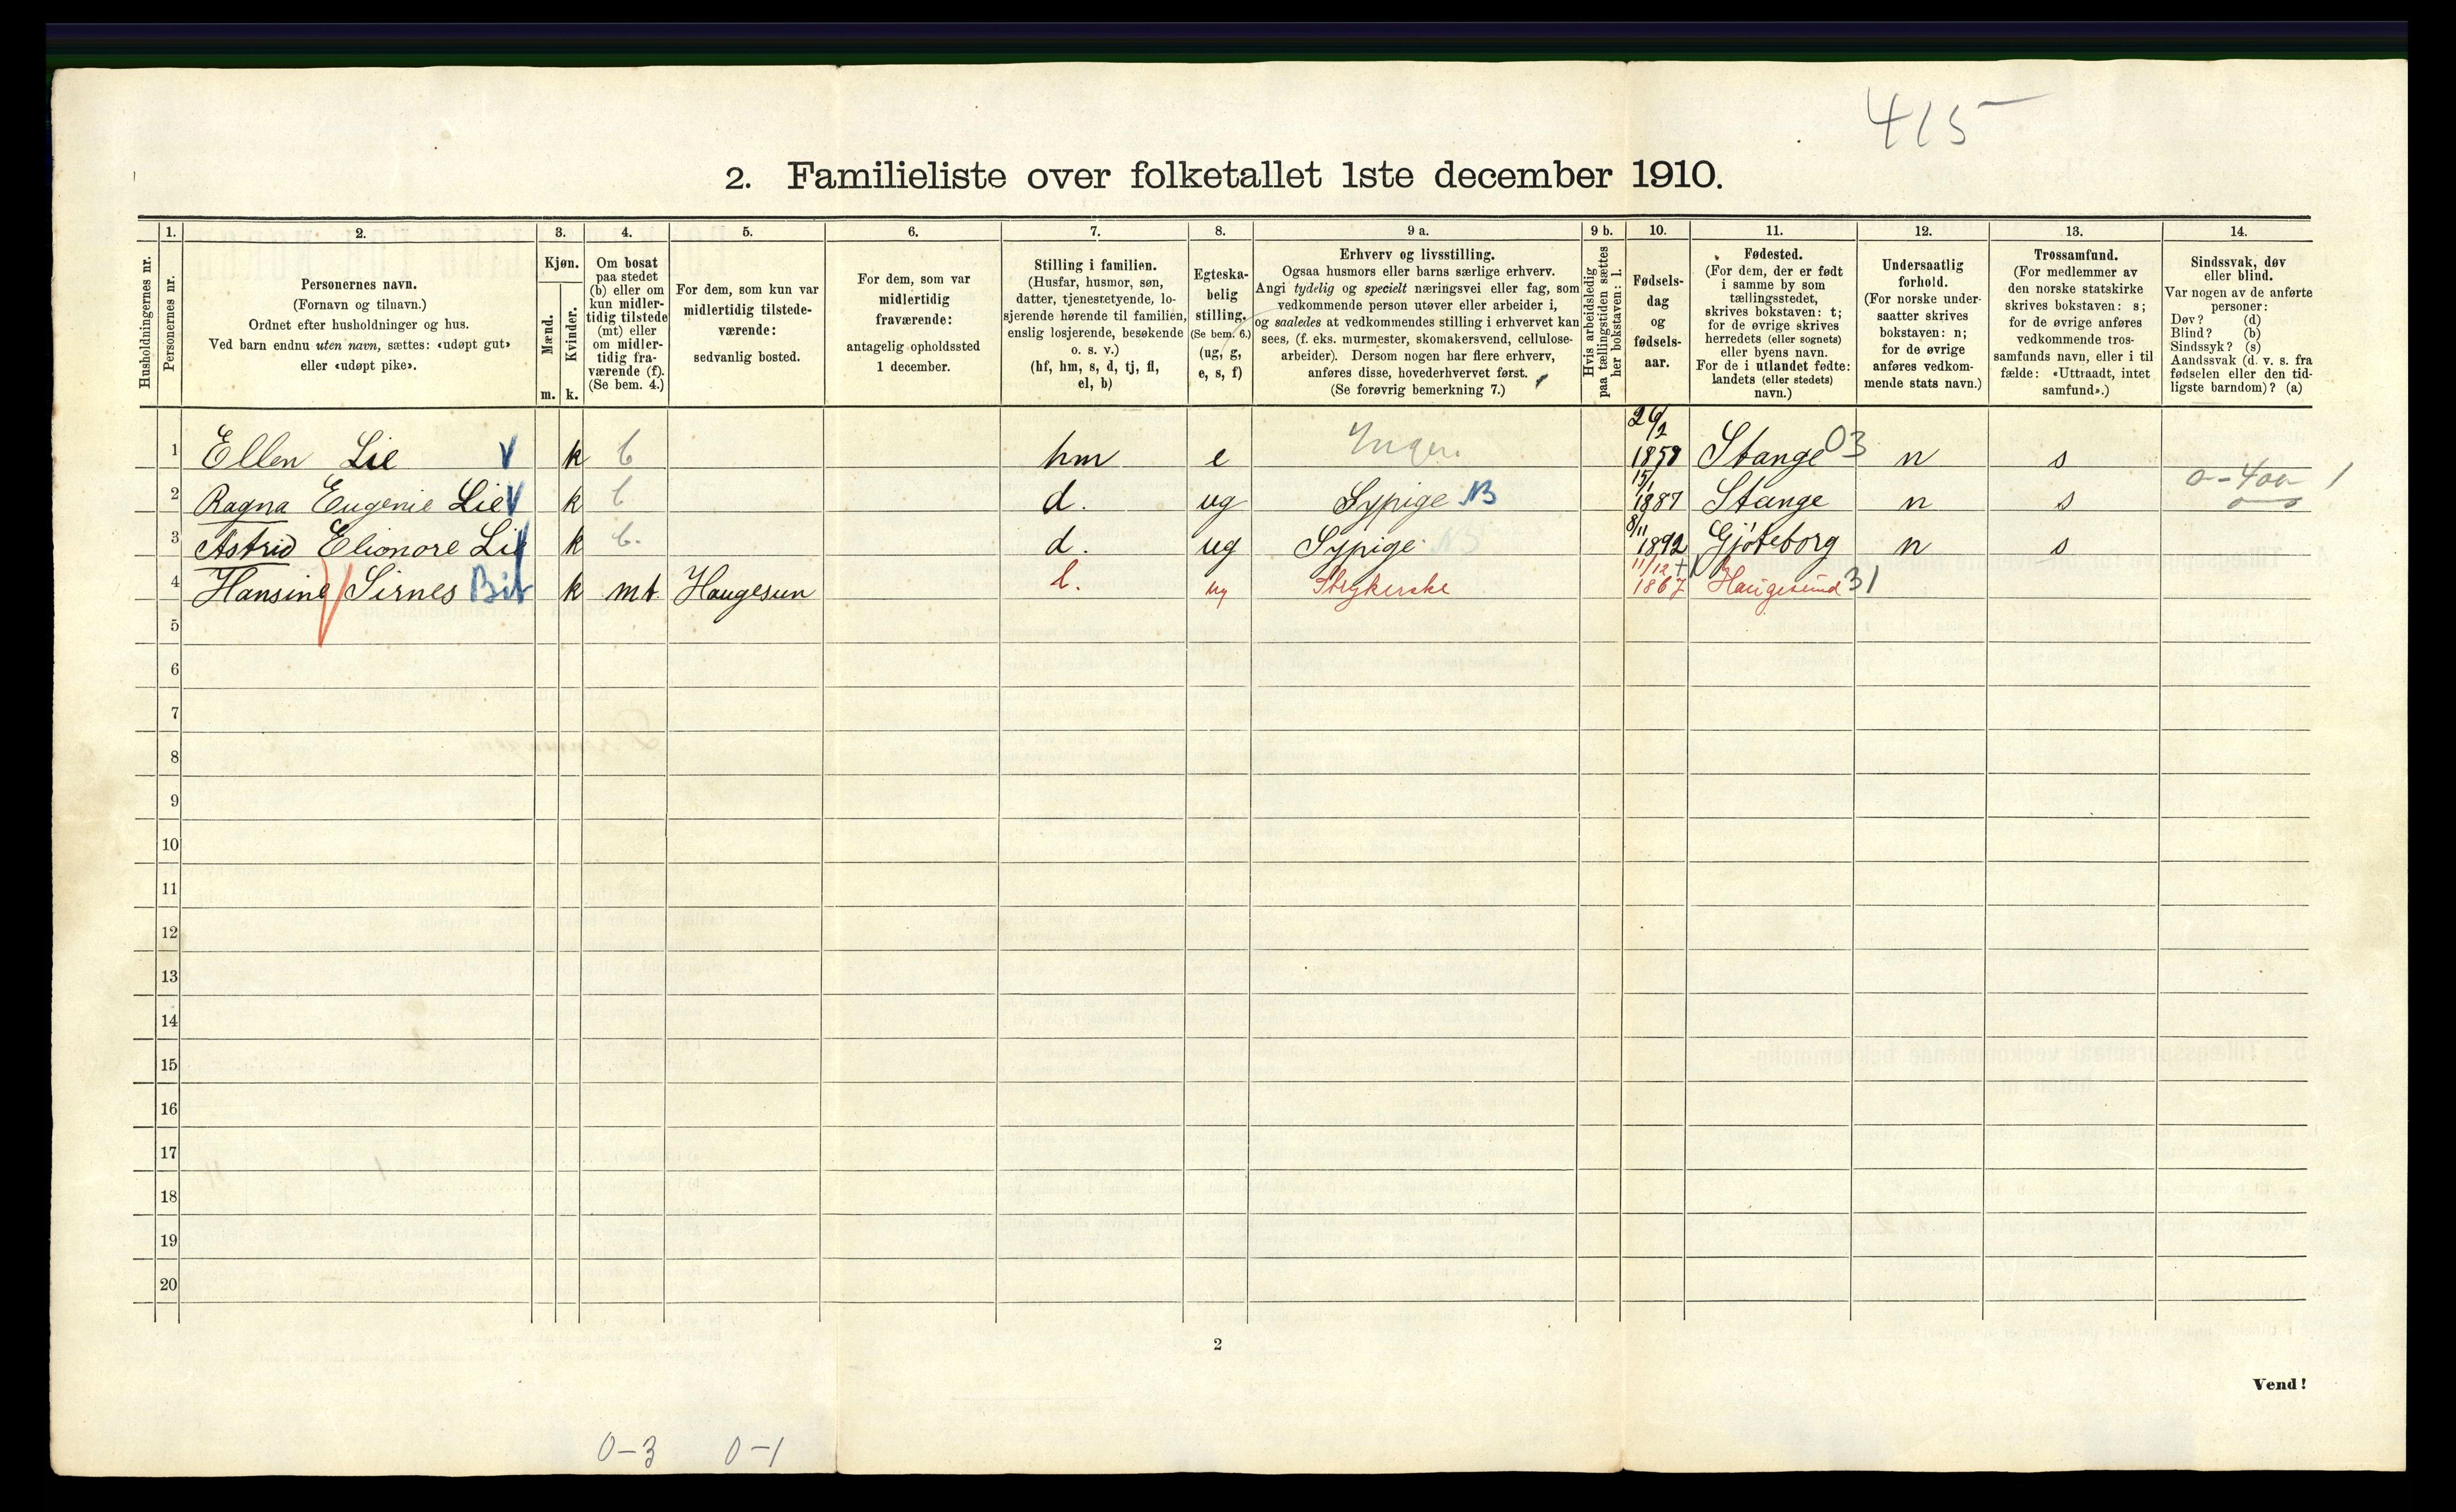 415
2. Familieliste over folketallet 1ste december 1910.
Husholdningernes nr.
1. Personernes nr.
2. Personernes navn.
(Fornavn og tilnavn.)
Ordnet efter husholdninger og hus.
Ved barn endnu uten navn, sættes: «udøpt gut»
eller «udøpt pike».
3. Kjøn.
Mænd. m.
Kvinder. k.
4. Om bosat
paa stedet
(b) eller om
kun midler-
tidig tilstede
(mt) eller
om midler-
tidig fra-
værende (f).
(Se bem. 4.)
5. For dem, som kun var
midlertidig tilstede-
værende:
sedvanlig bosted.
6. For dem, som var
midlertidig
fraværende:
antagelig opholdssted
1 december.
7. Stilling i familien.
(Husfar, husmor, søn,
datter, tjenestetyende, lo-
sjerende hørende til familien,
enslig losjerende, besøkende
o. s. v.)
(hf, hm, s, d, tj, fl,
el, b)
8. Egteska-
belig
stilling.
(Se bem. 6.)
(ug, g,
e, s, f)
9 a. Erhverv og livsstilling.
Ogsaa husmors eller barns særlige erhverv.
Angi tydelig og specielt næringsvei eller fag, som
vedkommende person utøver eller arbeider i,
og saaledes at vedkommendes stilling i erhvervet kan
sees, (f. eks. murmester, skomakersvend, cellulose-
arbeider). Dersom nogen har flere erhverv,
anføres disse, hovederhvervet først.
(Se forøvrig bemerkning 7.)
9 b. Hvis arbeidsledig
paa tællingstiden sættes
her bokstaven: l.
10. Fødsels-
dag
og
fødsels-
aar.
11. Fødested.
(For dem, der er født
i samme by som
tællingsstedet,
skrives bokstaven: t;
for de øvrige skrives
herredets (eller sognets)
eller byens navn.
For de i utlandet fødte:
landets (eller stedets)
navn.)
12. Undersaatlig
forhold.
(For norske under-
saatter skrives
bokstaven: n;
for de øvrige
anføres vedkom-
mende stats navn.)
13. Trossamfund.
(For medlemmer av
den norske statskirke
skrives bokstaven: s;
for de øvrige anføres
vedkommende tros-
samfunds navn, eller i til
fælde: «Uttraadt, intet
samfund».)
14. Sindssvak, døv
eller blind.
Var nogen av de anførte
personer:
Døv? (d)
Blind? (b)
Sindssyk? (s)
Aandssvak (d. v. s. fra
fødselen eller den tid-
ligste barndom)? (a)
1 Ellen Lie V k b hm e Ingen. 26/2 1858 Stange 03 n s
2 Ragna Eugenie Lie V k b d. ug Sypige NB 15/1 1887 Stange n s 1
3 Astrid Elionore Lie k b. d. ug Sypige NB 8/11 1892 Gjøteborg n s
4 Hansine Sirnes Bit k mt Haugesun l. ug Strykerske 11/12 1867 Haugesund 31
5
6
7
8
9
10
11
12
13
14
15
16
17
18
19
20
2
Vend!
0-3 0-1